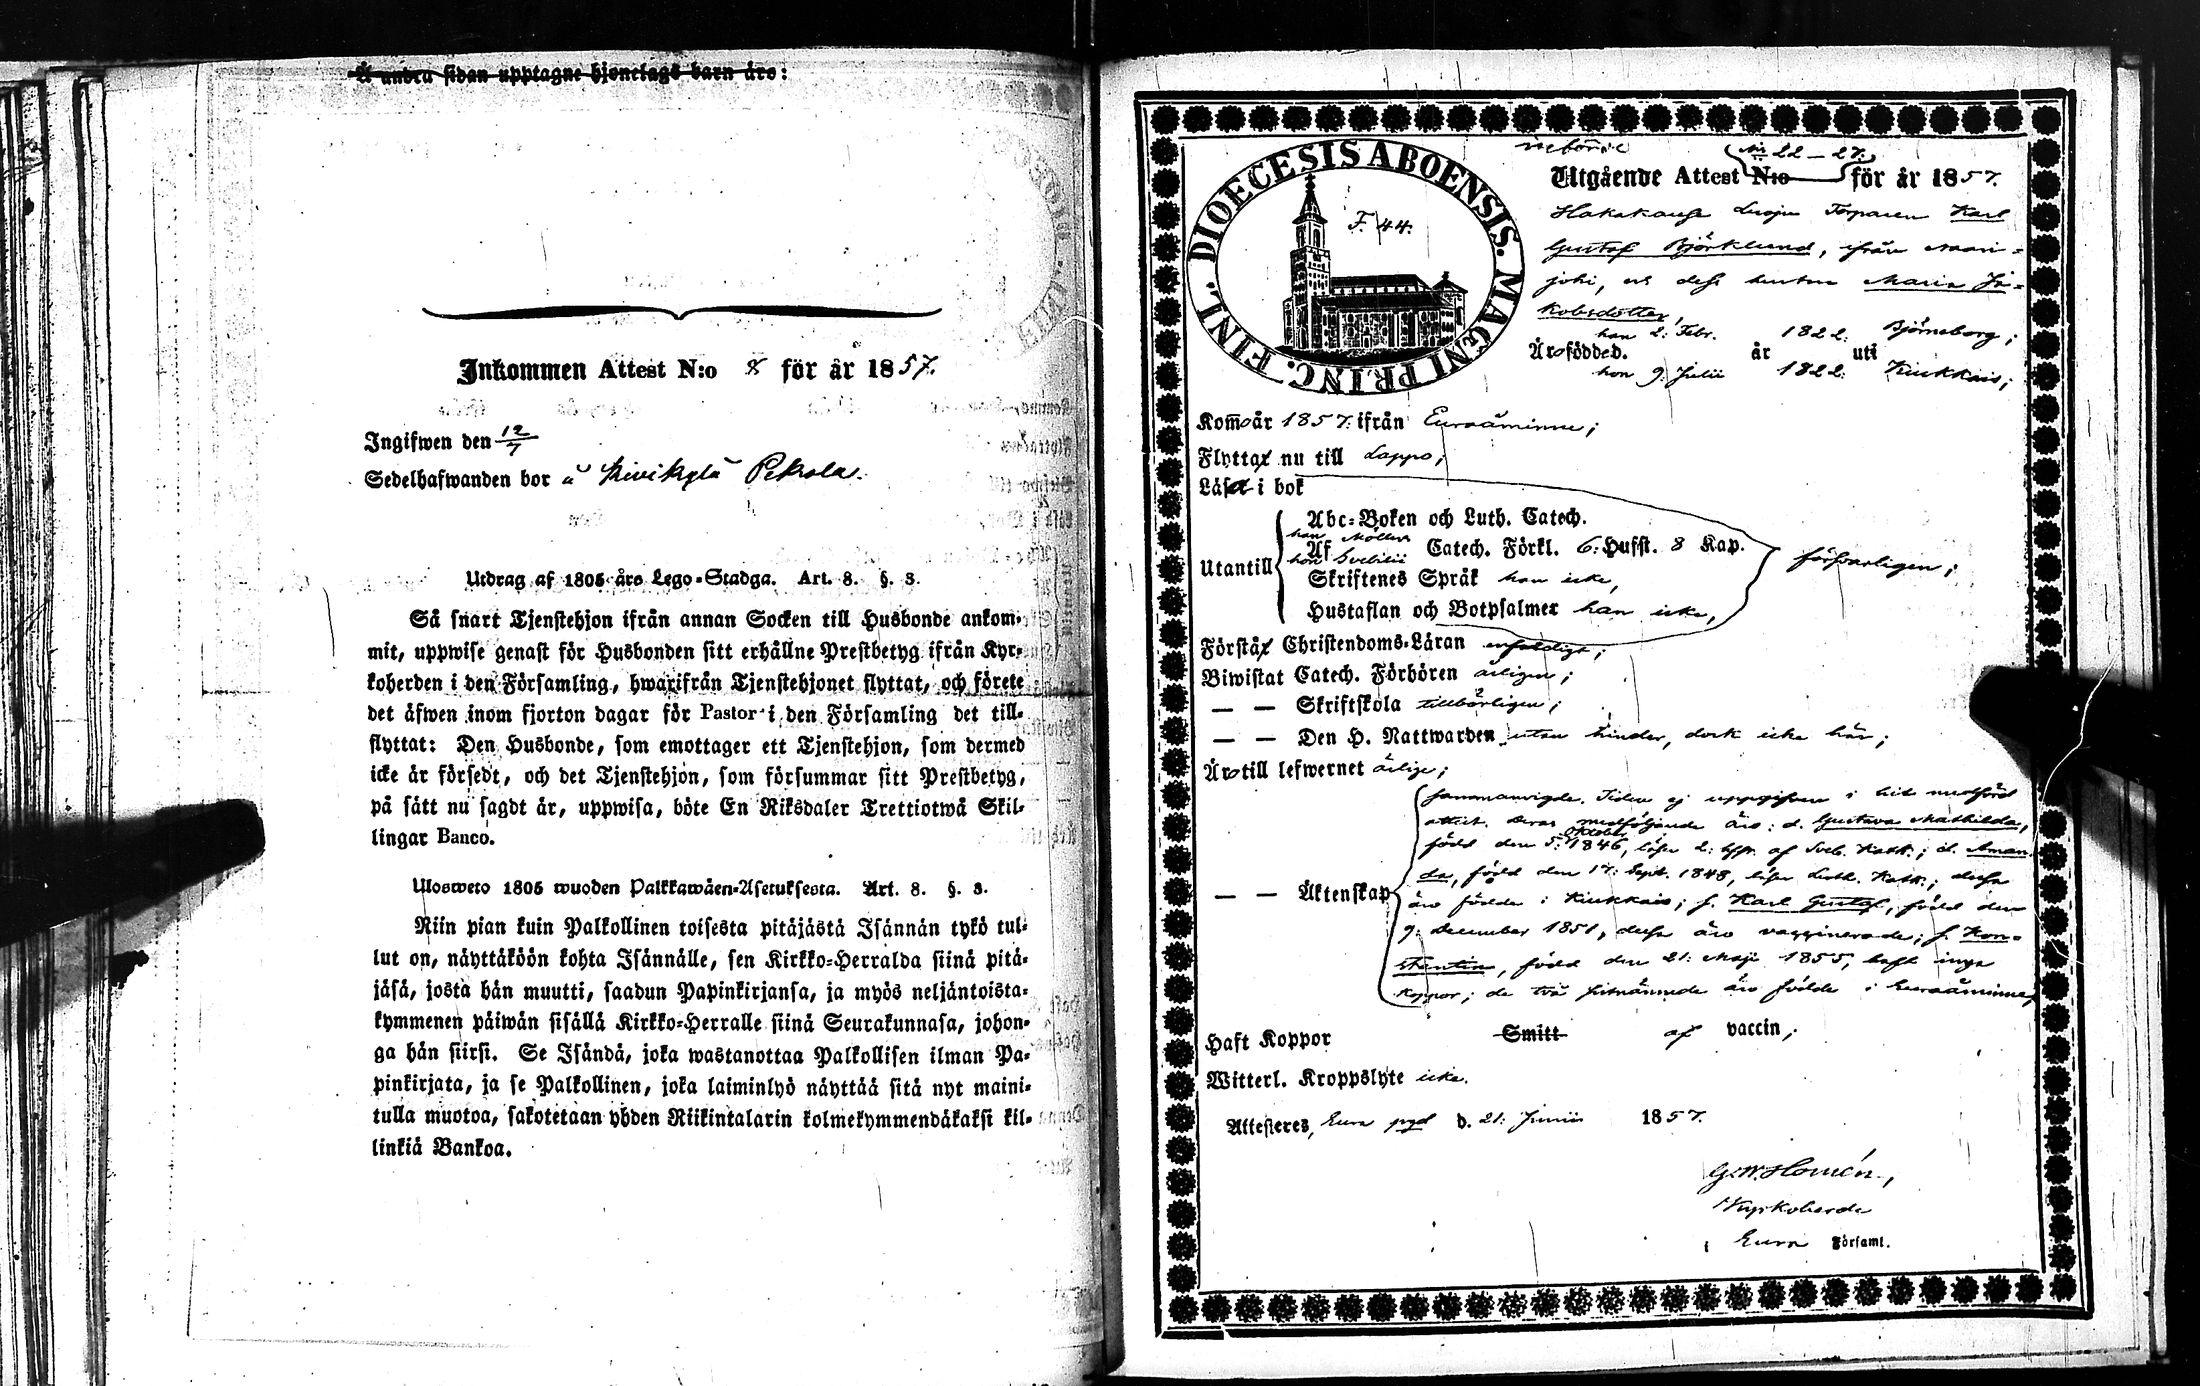 Å andra sidan upptagne hjonelags barn äro:
Inkommen Attest N:o 8 för år 1857.
Ingifwen den 12/7
Sedelhafwanden bor å Kivikylä Pekola.
Utdrag af 1805 års Lego-Stadga. Art. 8. §. 3.
Så snart Tjenstehjon ifrån annan Socken till Husbonde ankom-
mit, uppwise genast för Husbonden sitt erhållne Prestbetyg ifrån Kyr-
koherden i den Församling, hwarifrån Tjenstehjonet flyttat, och förete
det äfwen inom fjorton dagar för Pastor i den Församling det till-
flyttat: Den Husbonde, som emottager ett Tjenstehjon, som dermed
icke är försedt, och det Tjenstehjon, som försummar sitt Prestbetyg,
på sätt nu sagdt är, uppwisa, böte En Riksdaler Trettiotwå Skil-
lingar Banco.
Ulosweto 1805 wuoden Palkkawäen-Asetuksesta. Art. 8. §. 3.
Niin pian kuin Palkollinen toisesta pitäjästä Isännän tykö tul-
lut on, näyttäköön kohta Isännälle, sen Kirkko-Herralda siinä pitä-
jäsä, josta hän muutti, saadun Papinkirjansa, ja myös neljäntoista-
kymmenen päiwän sisällä Kirkko-Herralle siinä Seurakunnasa, johon-
ga hän siirsi. Se Isändä, joka wastanottaa Palkollisen ilman Pa-
pinkirjata, ja se Palkollinen, joka laiminlyö näyttää sitä nyt maini-
tulla muotoa, sakotetaan yhden Riikintalarin kolmekymmendäkaksi kil-
linkiä Bankoa.
DIOECESIS ABOENSIS. MAGNI PRINC. FINL.
F. 44.
N:ris 22 - 27.
Utgående Attest N:o för år 1857.
Torparen Karl
Gustaf Björklund, ifrån Naari-
joki, och dess hustru Maria Ja-
kobsdotter,
han 2: Febr. 1822: Björneborg;
Äro födde d. år uti
hon 9: Julii 1822: Kiukkais;
Kommo år 1857: ifrån Euraåminne;
Flytta nu till Lappo;
Läsa i bok
Abc-Boken och Luth. Catech.
han Möllers
Utantill Af Catech. Förkl. 6: Hufst. 8 Kap. försvarligen;
hon Svebilii
Skriftenes Språk han icke,
Hustaflan och Botpsalmer han icke,
Förstå Christendoms-Läran enfaldigt;
Biwistat Catech. Förhören årligen;
— — Skriftskola tillbörligen;
— — Den H. Nattwarden utan hinder, dock icke här;
Äro till lefwernet ärlige;
sammanvigde. Tiden ej uppgifven i hit medförd
attest. Deras medföljande äro: d. Gustava Mathilda,
född den 5: Oktober 1846, läser 2: hfst. af Sveb. Katk.; d. Aman-
da, född den 17: Sept. 1848, läser Luth. Katk.; dessa
— — Äktenskap
äro födde i Kiukkais; s. Karl Gustaf, född den
9: December 1851, dessa äro vaccinerade; s. Kon-
stantin, född den 21: Maji 1855, haft inga
koppor; de två sistnämnde äro födde i Euraåminne;
Haft Koppor Smitt af vaccin;
Witterl. Kroppslyte icke.
Attesteres, Eura pgd d. 21: Junii 1857.
G.W. Homén,
Kyrkoherde
i Eura Församl.